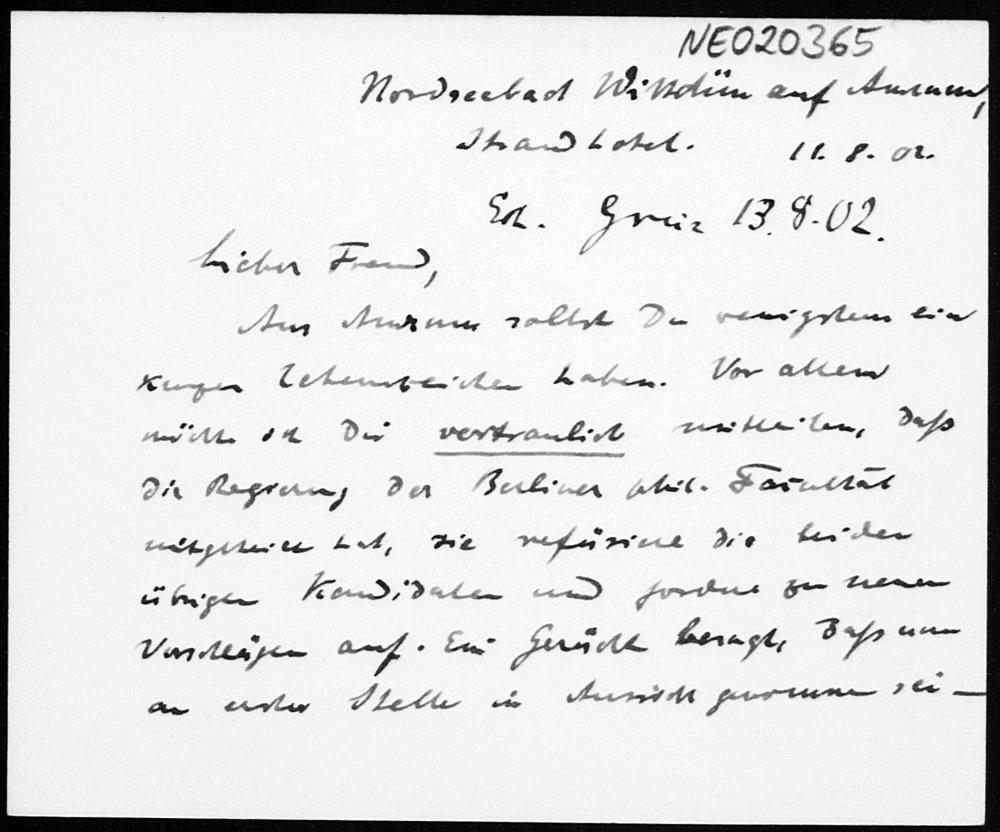 NE020365
Nordseebad Wittdün auf Amrum,
Strandhotel. 11. 8. 02.
Erh. Greiz 13.8.02.
Lieber Freund,
Aus Amrum sollst Du wenigstens ein
kurzes Lebenszeichen haben. Vor allem
möchte ich Dir vertraulich mitteilen, daß
die Regierung der Berliner phil. Facultät
mitgeteilt hat, sie refüsiere die beiden
übrigen Kandidaten und fordere zu neuen
Vorschlägen auf. Ein Gerücht besagt, daß nun
an erster Stelle in Aussicht genommen sei —